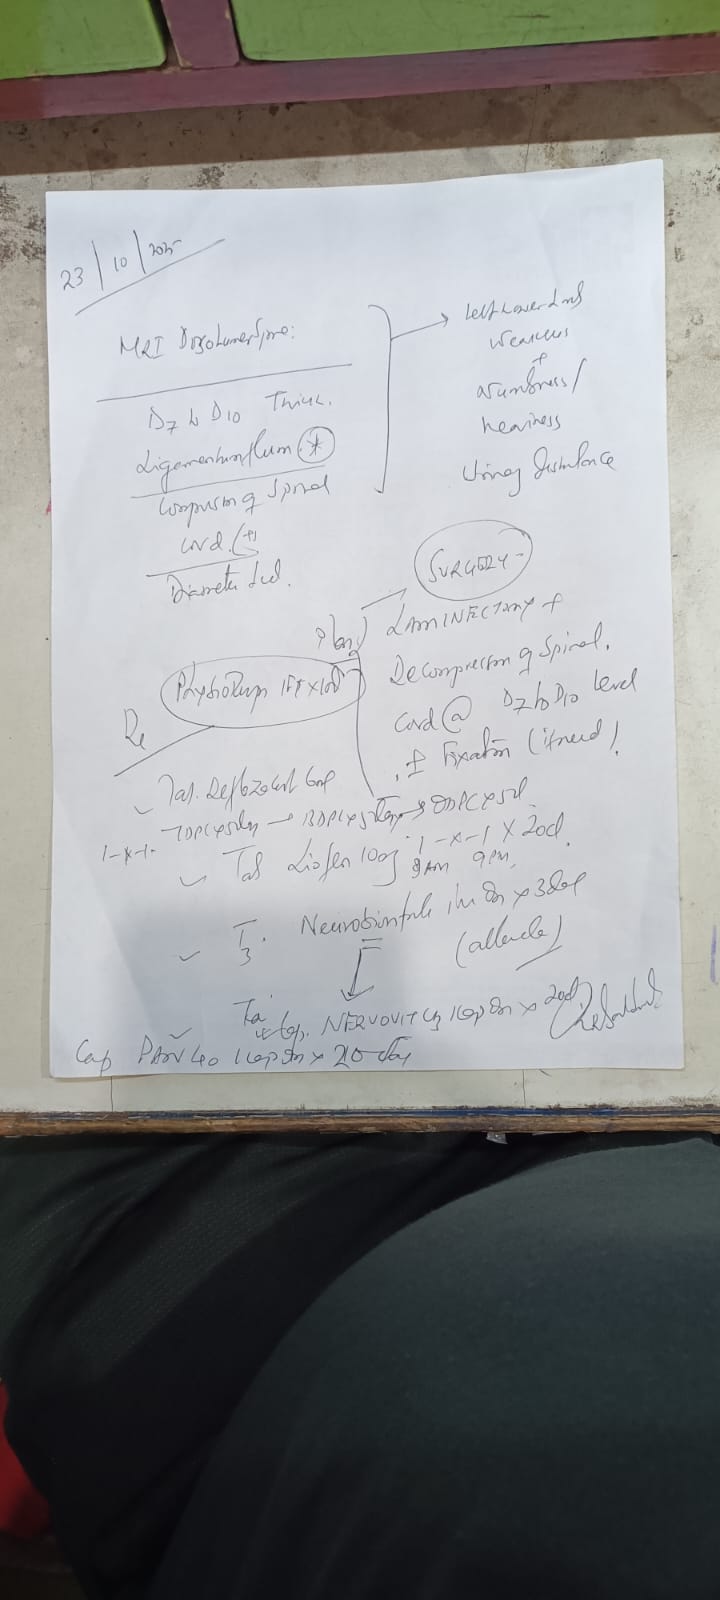 23/10/2025
MRI Dorsolumbar Spine:
D7 to D10 Thick.
Ligamentum flavum (*)
Compression of Spinal
cord (+)
Diameter
Left Lower Limb
Weakness
+
Numbness/
heaviness
Urinary disturbance
SURGERY
Plan) LAMINECTOMY +
Decompression of Spinal
Cord @ D7 to D10 Level
± Fixation (if need).
Physiotherapy IFT x 10d
Rx
Tab. Deflazacort 6mg
1-x-1.
Tab Liofen 10mg 1-x-1 x 20d.
9AM 9PM
3 Neurobion forte x 3 day
Cap. NERVOVIT 1 cap x 20d
Cap PAN 40 1 cap x 20 day